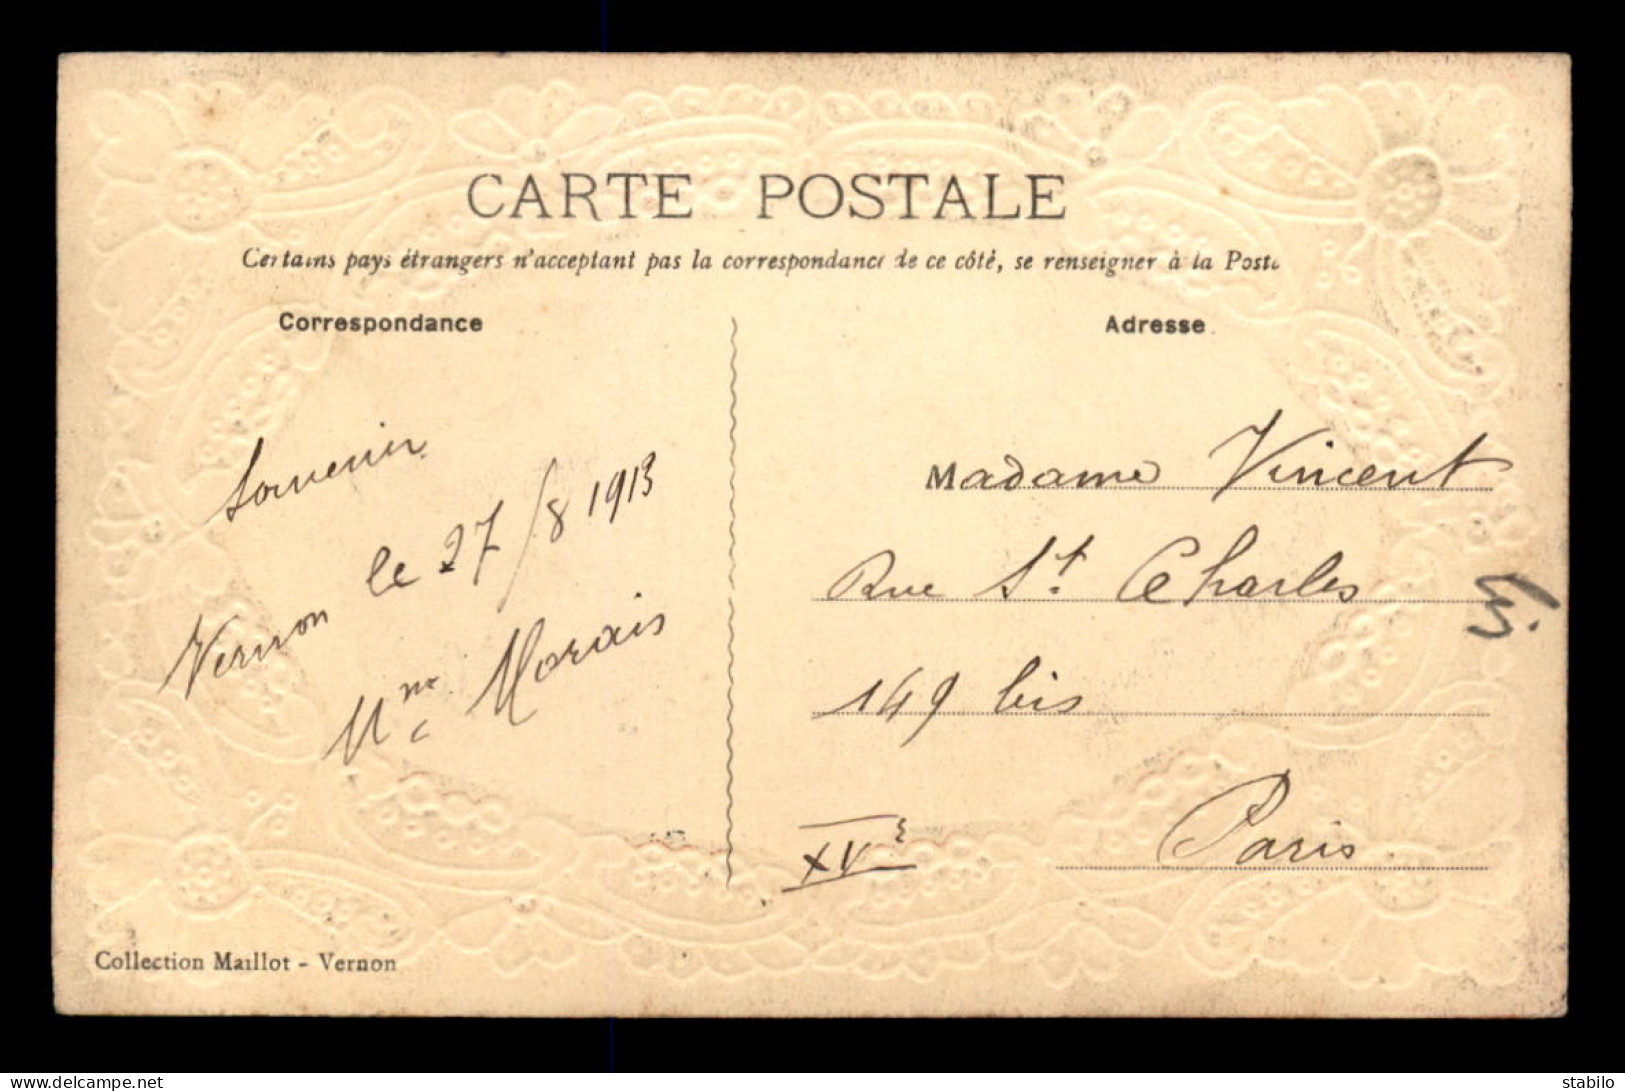 CARTE POSTALE
Certains pays étrangers n'acceptant pas la correspondance de ce côté, se renseigner à la Poste
Correspondance
Adresse
Souvenir
Vernon le 27/8 1913
Mme Morais
Madame Vincent
Rue St. Charles
149 bis
Paris
XVe
Collection Maillot - Vernon
delcampe.net
stabilo